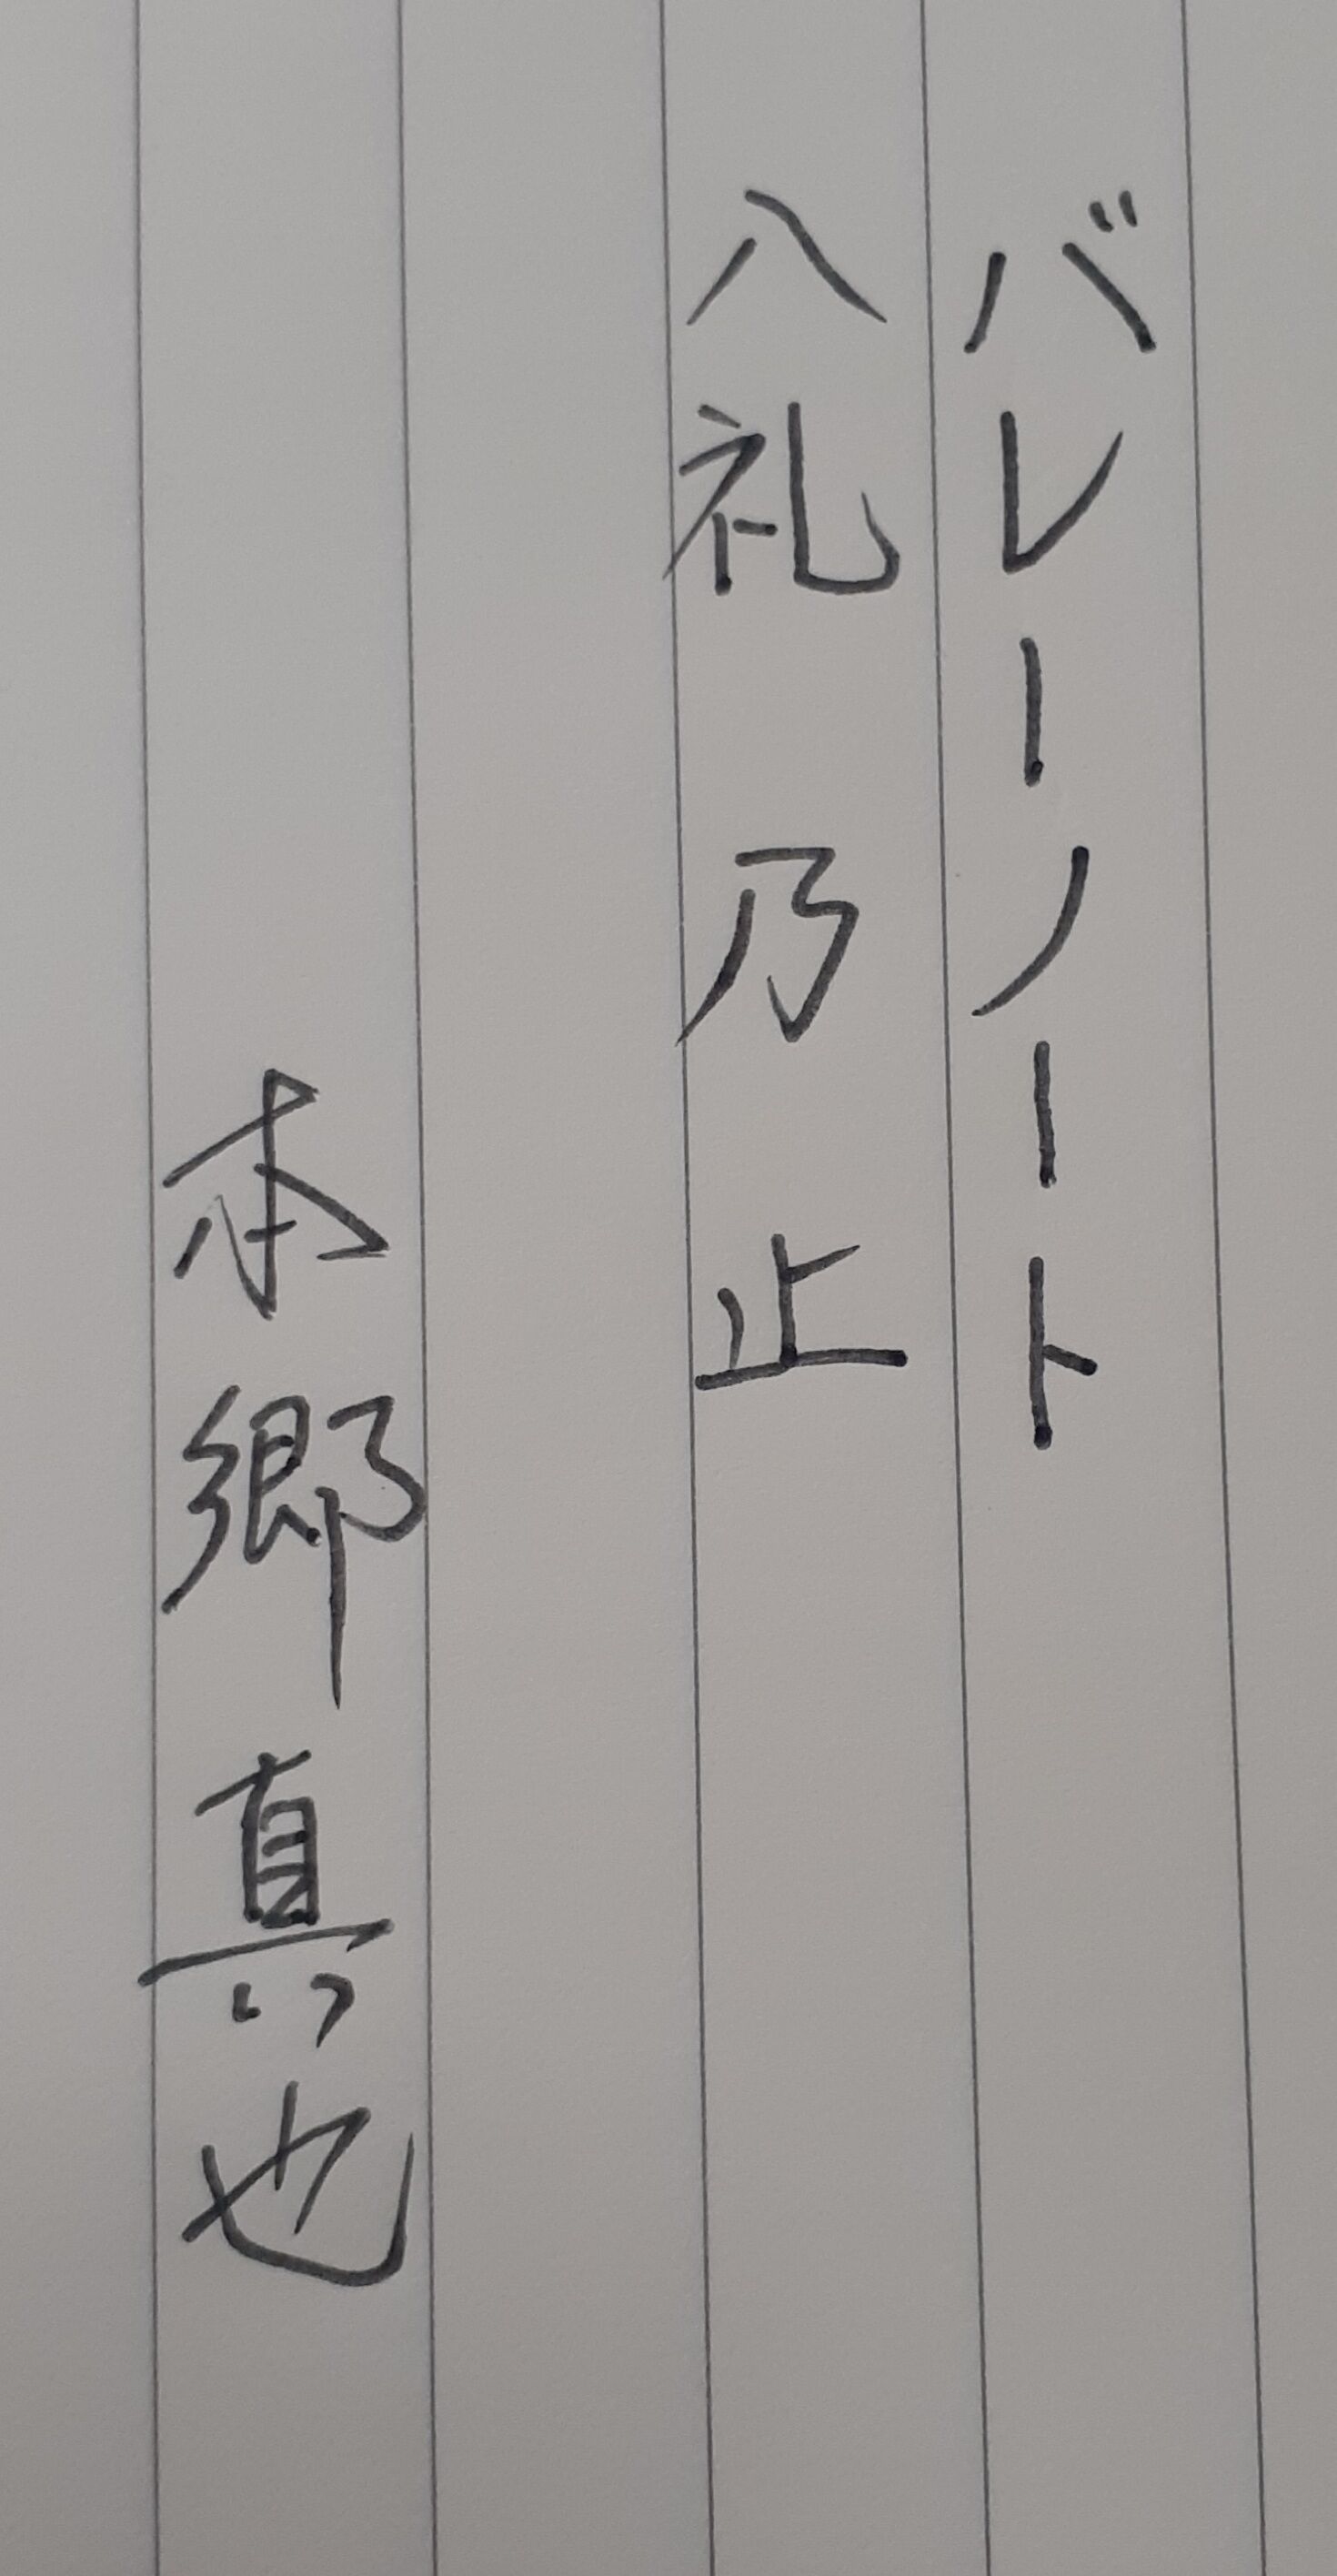 バレーノート
八礼乃止
本郷真也